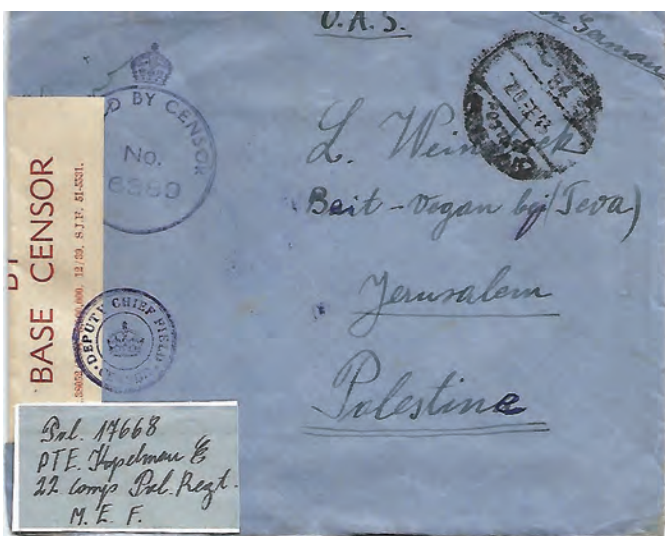 O.A.S.
German
D BY CENSOR
No.
6389
BASE CENSOR
12/39. S.J.F. 51-5331.
DEPUTY CHIEF FIELD CENSOR
L.
Beit - Vegan by (Teva)
Jerusalem
Palestine
Pal. 17668
PTE. Kopelman E
22 Comp Pal. Regt.
M. E. F.